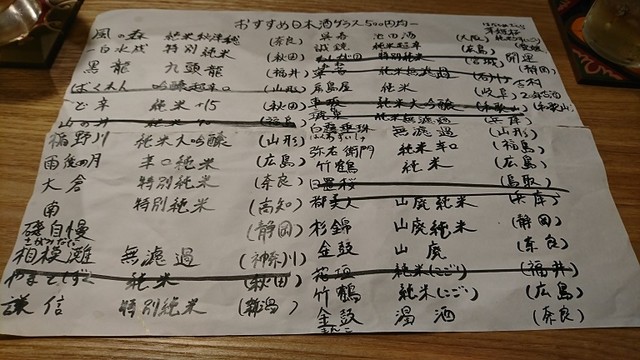 おすすめ日本酒グラス500円均一
風の森 純米秋津穂 (奈良)
一白水成 特別純米 (秋田)
黒龍 九頭龍 (福井)
ばくれん 吟醸超辛口 (山形)
ど辛 純米+15 (秋田)
山の井 純米 (福島)
楯野川 純米大吟醸 (山形)
雨後の月 辛口純米 (広島)
大倉 特別純米 (奈良)
南 特別純米 (高知)
磯自慢 (静岡)
相模灘 無濾過 (神奈川)
やまとしずく 純米 (秋田)
謙信 特別純米 (新潟)
呉春 池田酒 (大阪)
誠鏡 純米超辛 (広島)
特別純米 (宮城)
純米無濾過
房島屋 純米 (岐阜)
車坂 純米大吟醸 (和歌山)
純米無濾過 (兵庫)
白露垂珠 無濾過 (山形)
弥右衛門 純米辛口 (福島)
竹鶴 純米 (広島)
日置桜 (鳥取)
都美人 山廃純米 (兵庫)
杉錦 山廃純米 (静岡)
金鼓 山廃 (奈良)
花垣 純米(にごり) (福井)
竹鶴 純米(にごり) (広島)
金鼓 濁酒 (奈良)
きんこ
開運
(静岡)
(愛媛)